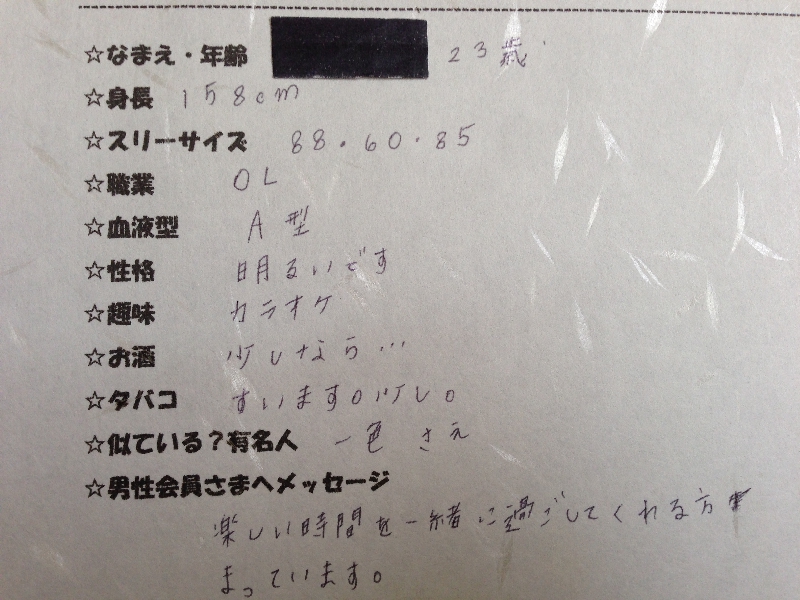 ☆なまえ・年齢 23歳
☆身長 158cm
☆スリーサイズ 88.60.85
☆職業 OL
☆血液型 A型
☆性格 明るいです
☆趣味 カラオケ
☆お酒 少しなら…
☆タバコ すいます。少し。
☆似ている?有名人 一色 さえ
☆男性会員さまへメッセージ
楽しい時間を一緒に過ごしてくれる方
まっています。